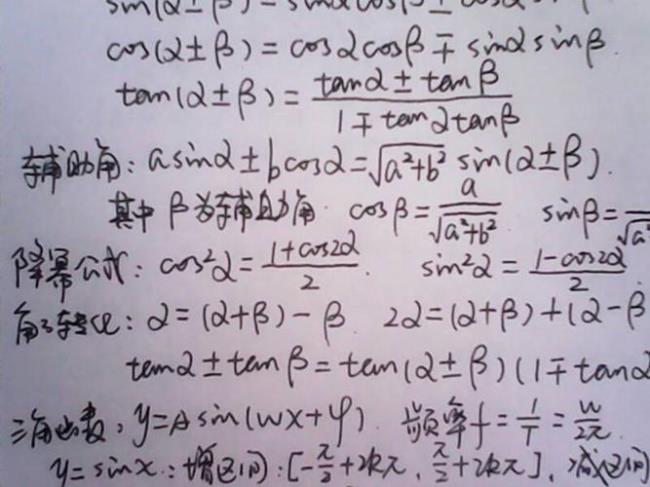 sin(α±β)=sinαcosβ±cosα
cos(α±β)=cosαcosβ∓sinαsinβ.
tan(α±β)=\frac{tanα±tanβ}{1∓tanαtanβ}
辅助角:asinα±bcosα=\sqrt{a²+b²}sin(α±β).
其中β为辅助角 cosβ=\frac{a}{\sqrt{a²+b²}} sinβ=
降幂公式:cos²α=\frac{1+cos2α}{2}. sin²α=\frac{1-cos2α}{2}
角的转化:α=(α+β)-β 2α=(α+β)+(α-β
tanα±tanβ=tan(α±β)(1∓tanα
三角函数:y=Asin(wx+φ). 频率f=\frac{1}{T}=\frac{w}{2π}
y=sinx:增区间:[-\frac{π}{2}+2kπ,\frac{π}{2}+2kπ],减区间